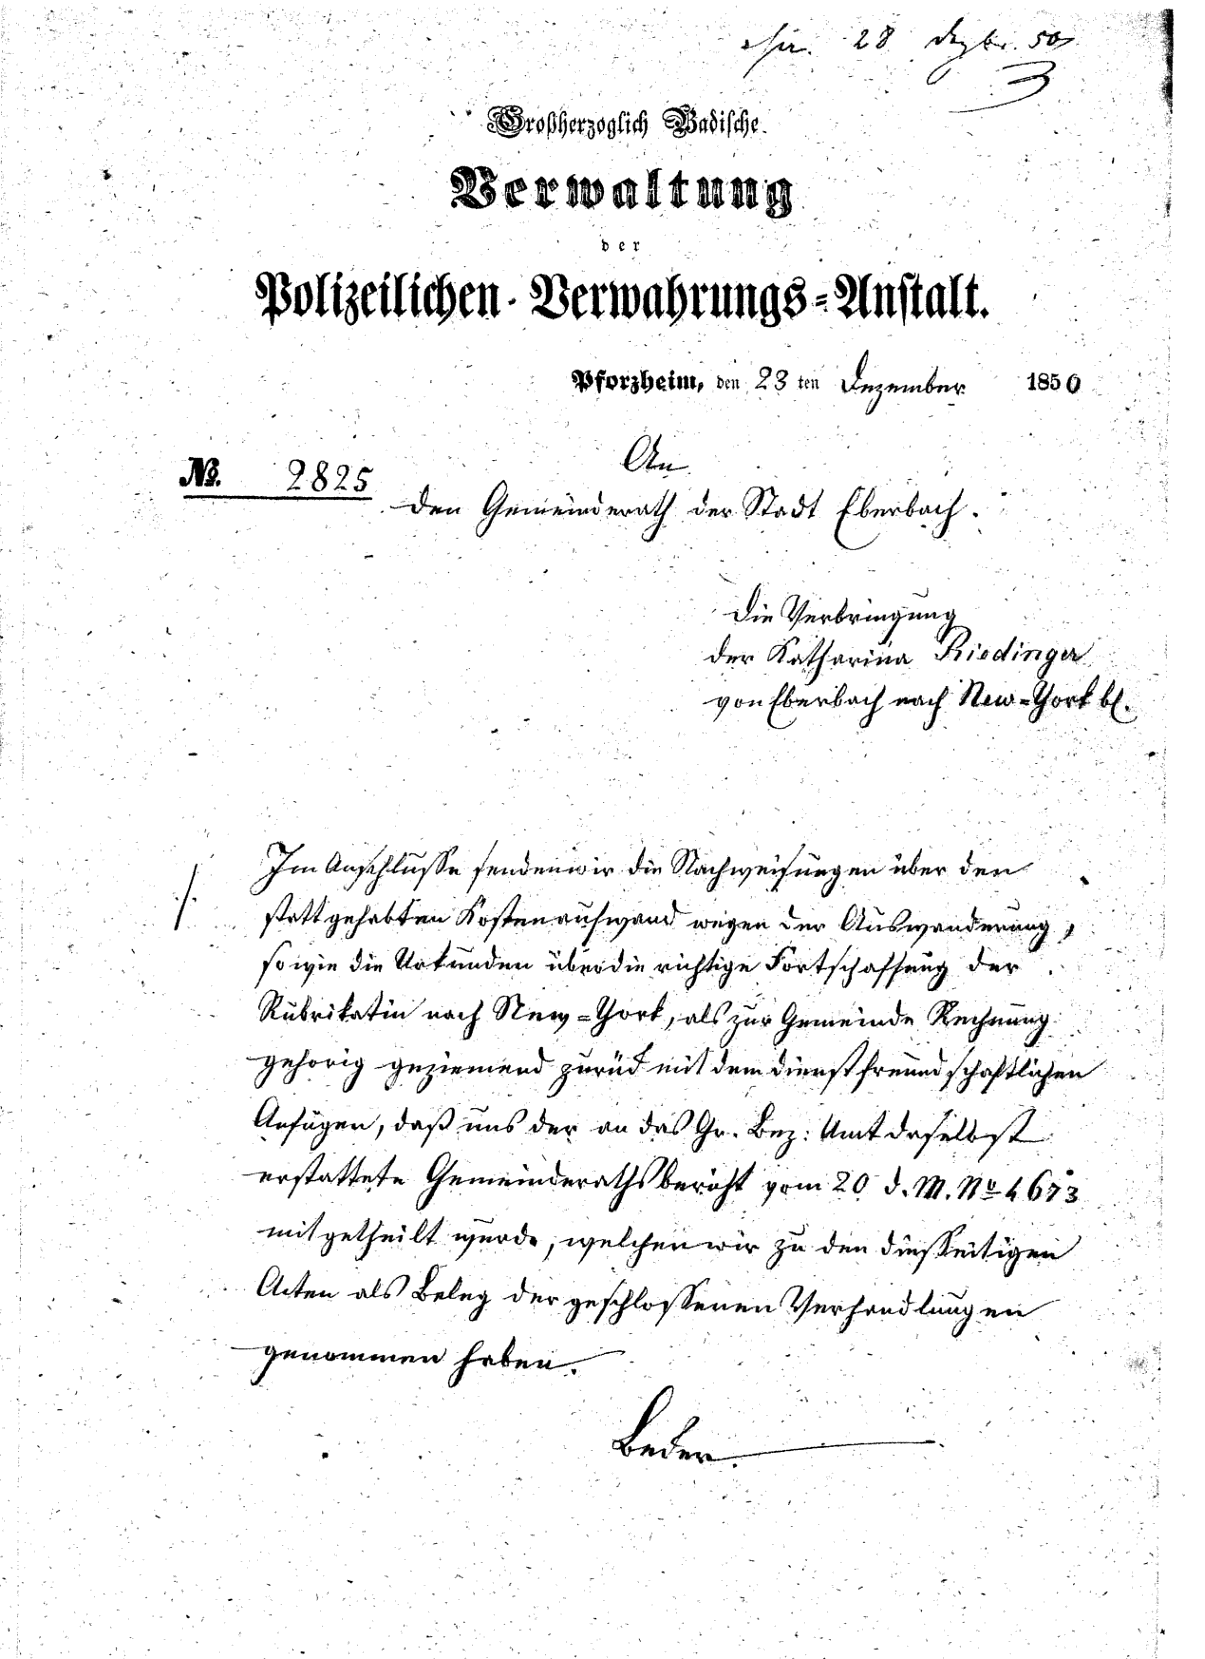 28 Dezbr. 50
Großherzoglich Badische
Verwaltung
der
Polizeilichen Verwahrungs-Anstalt.
Pforzheim, den 23 ten Dezember 1850
No. 2825
An
den Gemeinderath der Stadt Eberbach.
Die Verbringung
der Katharina Riedinger
von Eberbach nach New-York btr.
Im Anschlusse senden wir die Nachweisungen über den
statt gehabten Kostenaufwand wegen der Auswanderung,
sowie die Urkunden über die richtige Fortschaffung der
Rubrikatin nach New-York, als zur Gemeinde Rechnung
gehörig geziemend zurück mit dem dienstfreundschaftlichen
Anfügen, daß uns der an das Gr. Bez: Amt daselbst
erstattete Gemeinderathsbericht vom 20 d. M. No 4673
mitgetheilt wurde, welchen wir zu den diesseitigen
Acten als Beleg der geschlossenen Verhandlungen
genommen haben.